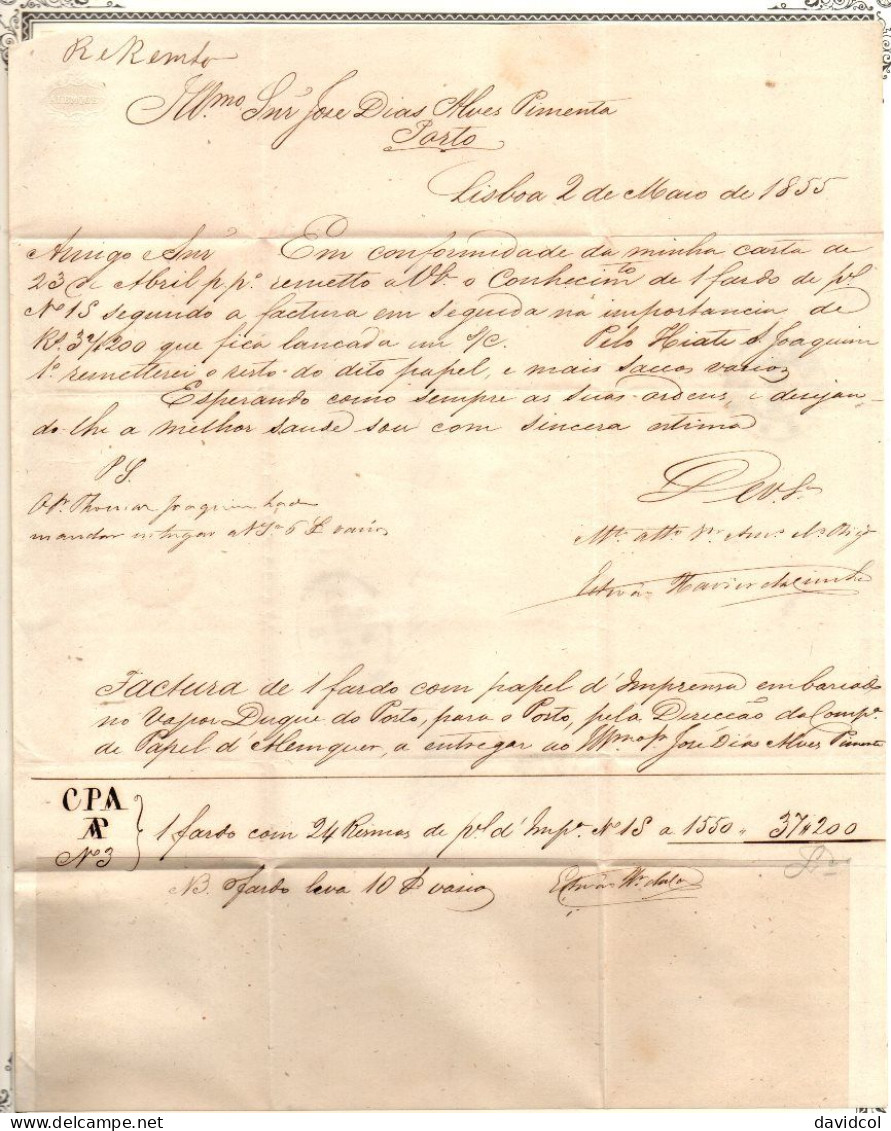 Illmo. Snr José Dias Alves Pimenta
Porto
Lisboa 2 de Maio de 1855
Amigo e Snr Em conformidade da minha carta de
23 de Abril p.pº. remetto a V.Sa. o Conhecimto. de 1 fardo de pl.
Nº 1S segundo a factura em seguida na importancia de
Rs. 37#200 que fica lancada em S/C. Pelo Hiate S. Joaquim
1º remetterei o resto do dito papel, e mais saccos vasios
Esperando como sempre as suas ordens, e desejan-
do-lhe a melhor saude sou com sincera estima
P.S.
De V.Sa.
mandar entregar
Factura de 1 fardo com papel d'Imprensa embarcado
no Vapor Duque do Porto, para o Porto, pela Direcção da Compa.
de Papel d'Alemquer, a entregar ao Illmo Sr. José Dias Alves Pimenta
CPA
AP
Nº 3
1 fardo com 24 Resmas de pl. d'Impa. Nº 1S a 1550 " 37#200
NB. fardo leva 10
davidcol